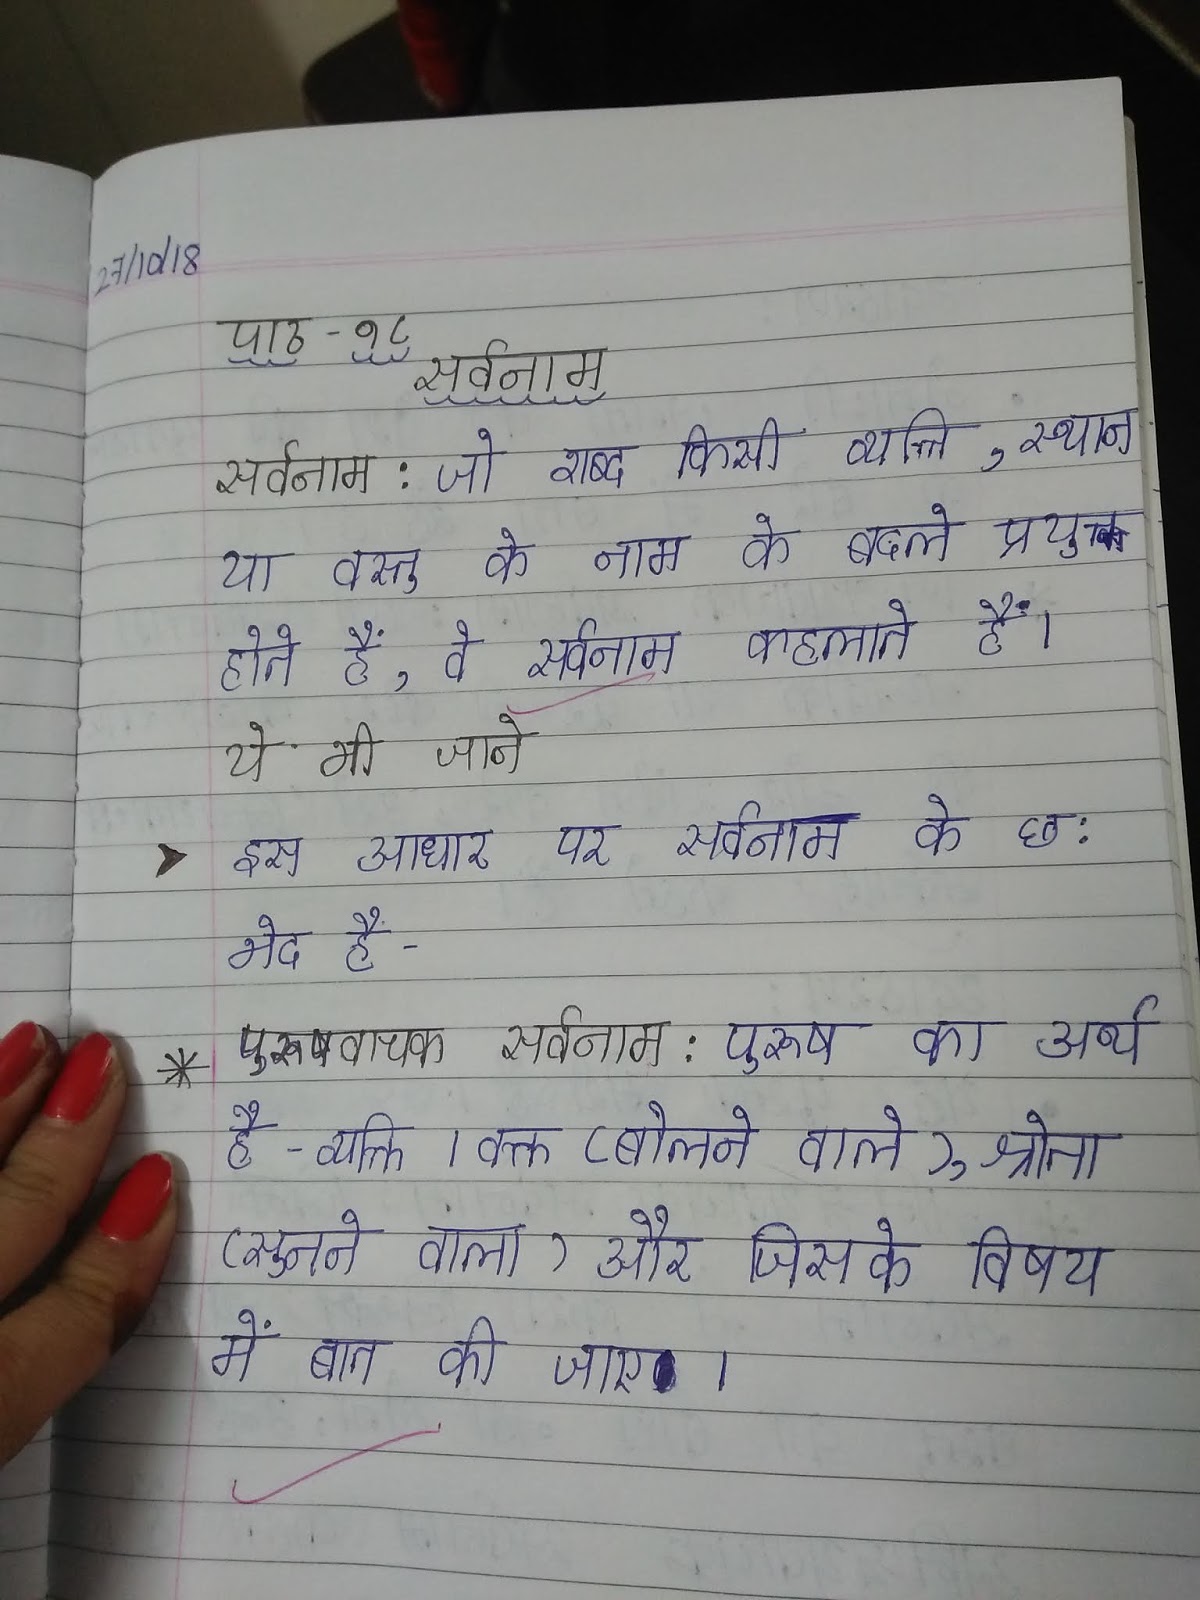 27/10/18
पाठ - १८
सर्वनाम
सर्वनाम : जो शब्द किसी व्यक्ति , स्थान
या वस्तु के नाम के बदले प्रयुक्त
होते हैं , वे सर्वनाम कहलाते हैं ।
ये भी जाने
➤ इस आधार पर सर्वनाम के छः
भेद हैं -
* पुरूषवाचक सर्वनाम : पुरूष का अर्थ
है - व्यक्ति । वक्त (बोलने वाले ), श्रोता
(सुनने वाला ) और जिसके विषय
में बात की जाए ।